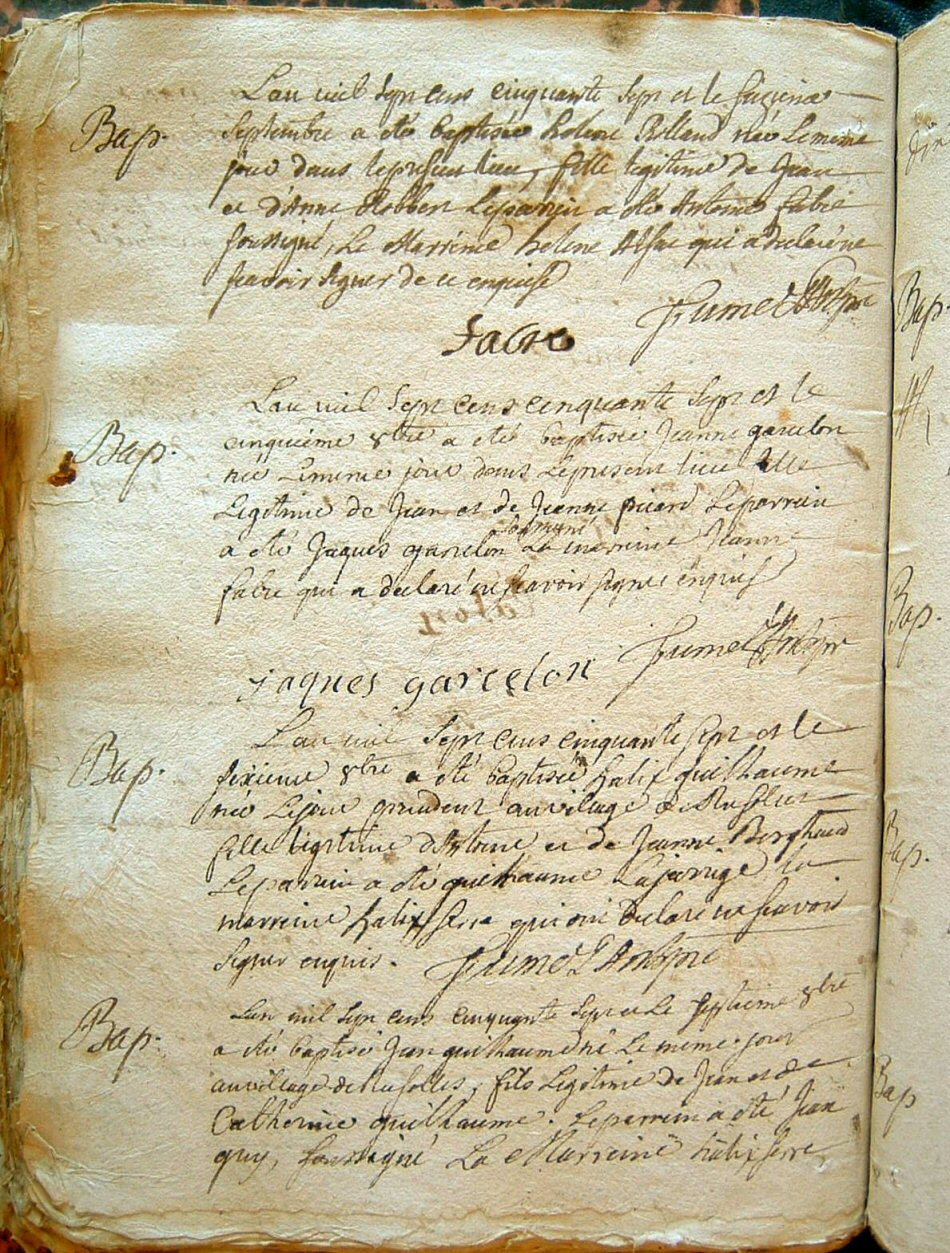 L'an mil sept cens cinquante sept et le
Bap. Septembre a été baptisée helene Rolland née le meme
jour dans le present lieu, fille legitime de Jean
et d'Anne Robbert Le parrin a été Antoine fabre
soussigné, La Marreine helene qui a declaré ne
scavoir signer de ce enquise
fabre
L'an mil sept cens cinquante sept et le
Bap. cinquième 8bre a été baptisée Jeanne garcelon
née le meme jour dans le present lieu fille
Legitime de Jean et de Jeanne picard Le parrain
soussigné
a été Jaques garcelon La marreine Jeanne
fabre qui a declaré ne scavoir signer enquise
jaques garcelon
L'an mil sept cens cinquante sept et le
Bap. sixieme 8bre a été baptisée halix guilhaume
née Le jour precedent au village de
fille legitime d'Antoine et de Jeanne Berghaud
Le parrin a été guilhaume Lajarrige la
marreine halix serre qui ont declaré ne scavoir
signer enquis.
L'an mil sept cens cinquante sept et Le septieme 8bre
Bap. a été baptisé Jean guilhaume né Le meme jour
au village de, fils Legitime de Jean et de
Catherine guilhaume. Le parrein a été Jean
guy, soussigné La Marreine halix serre